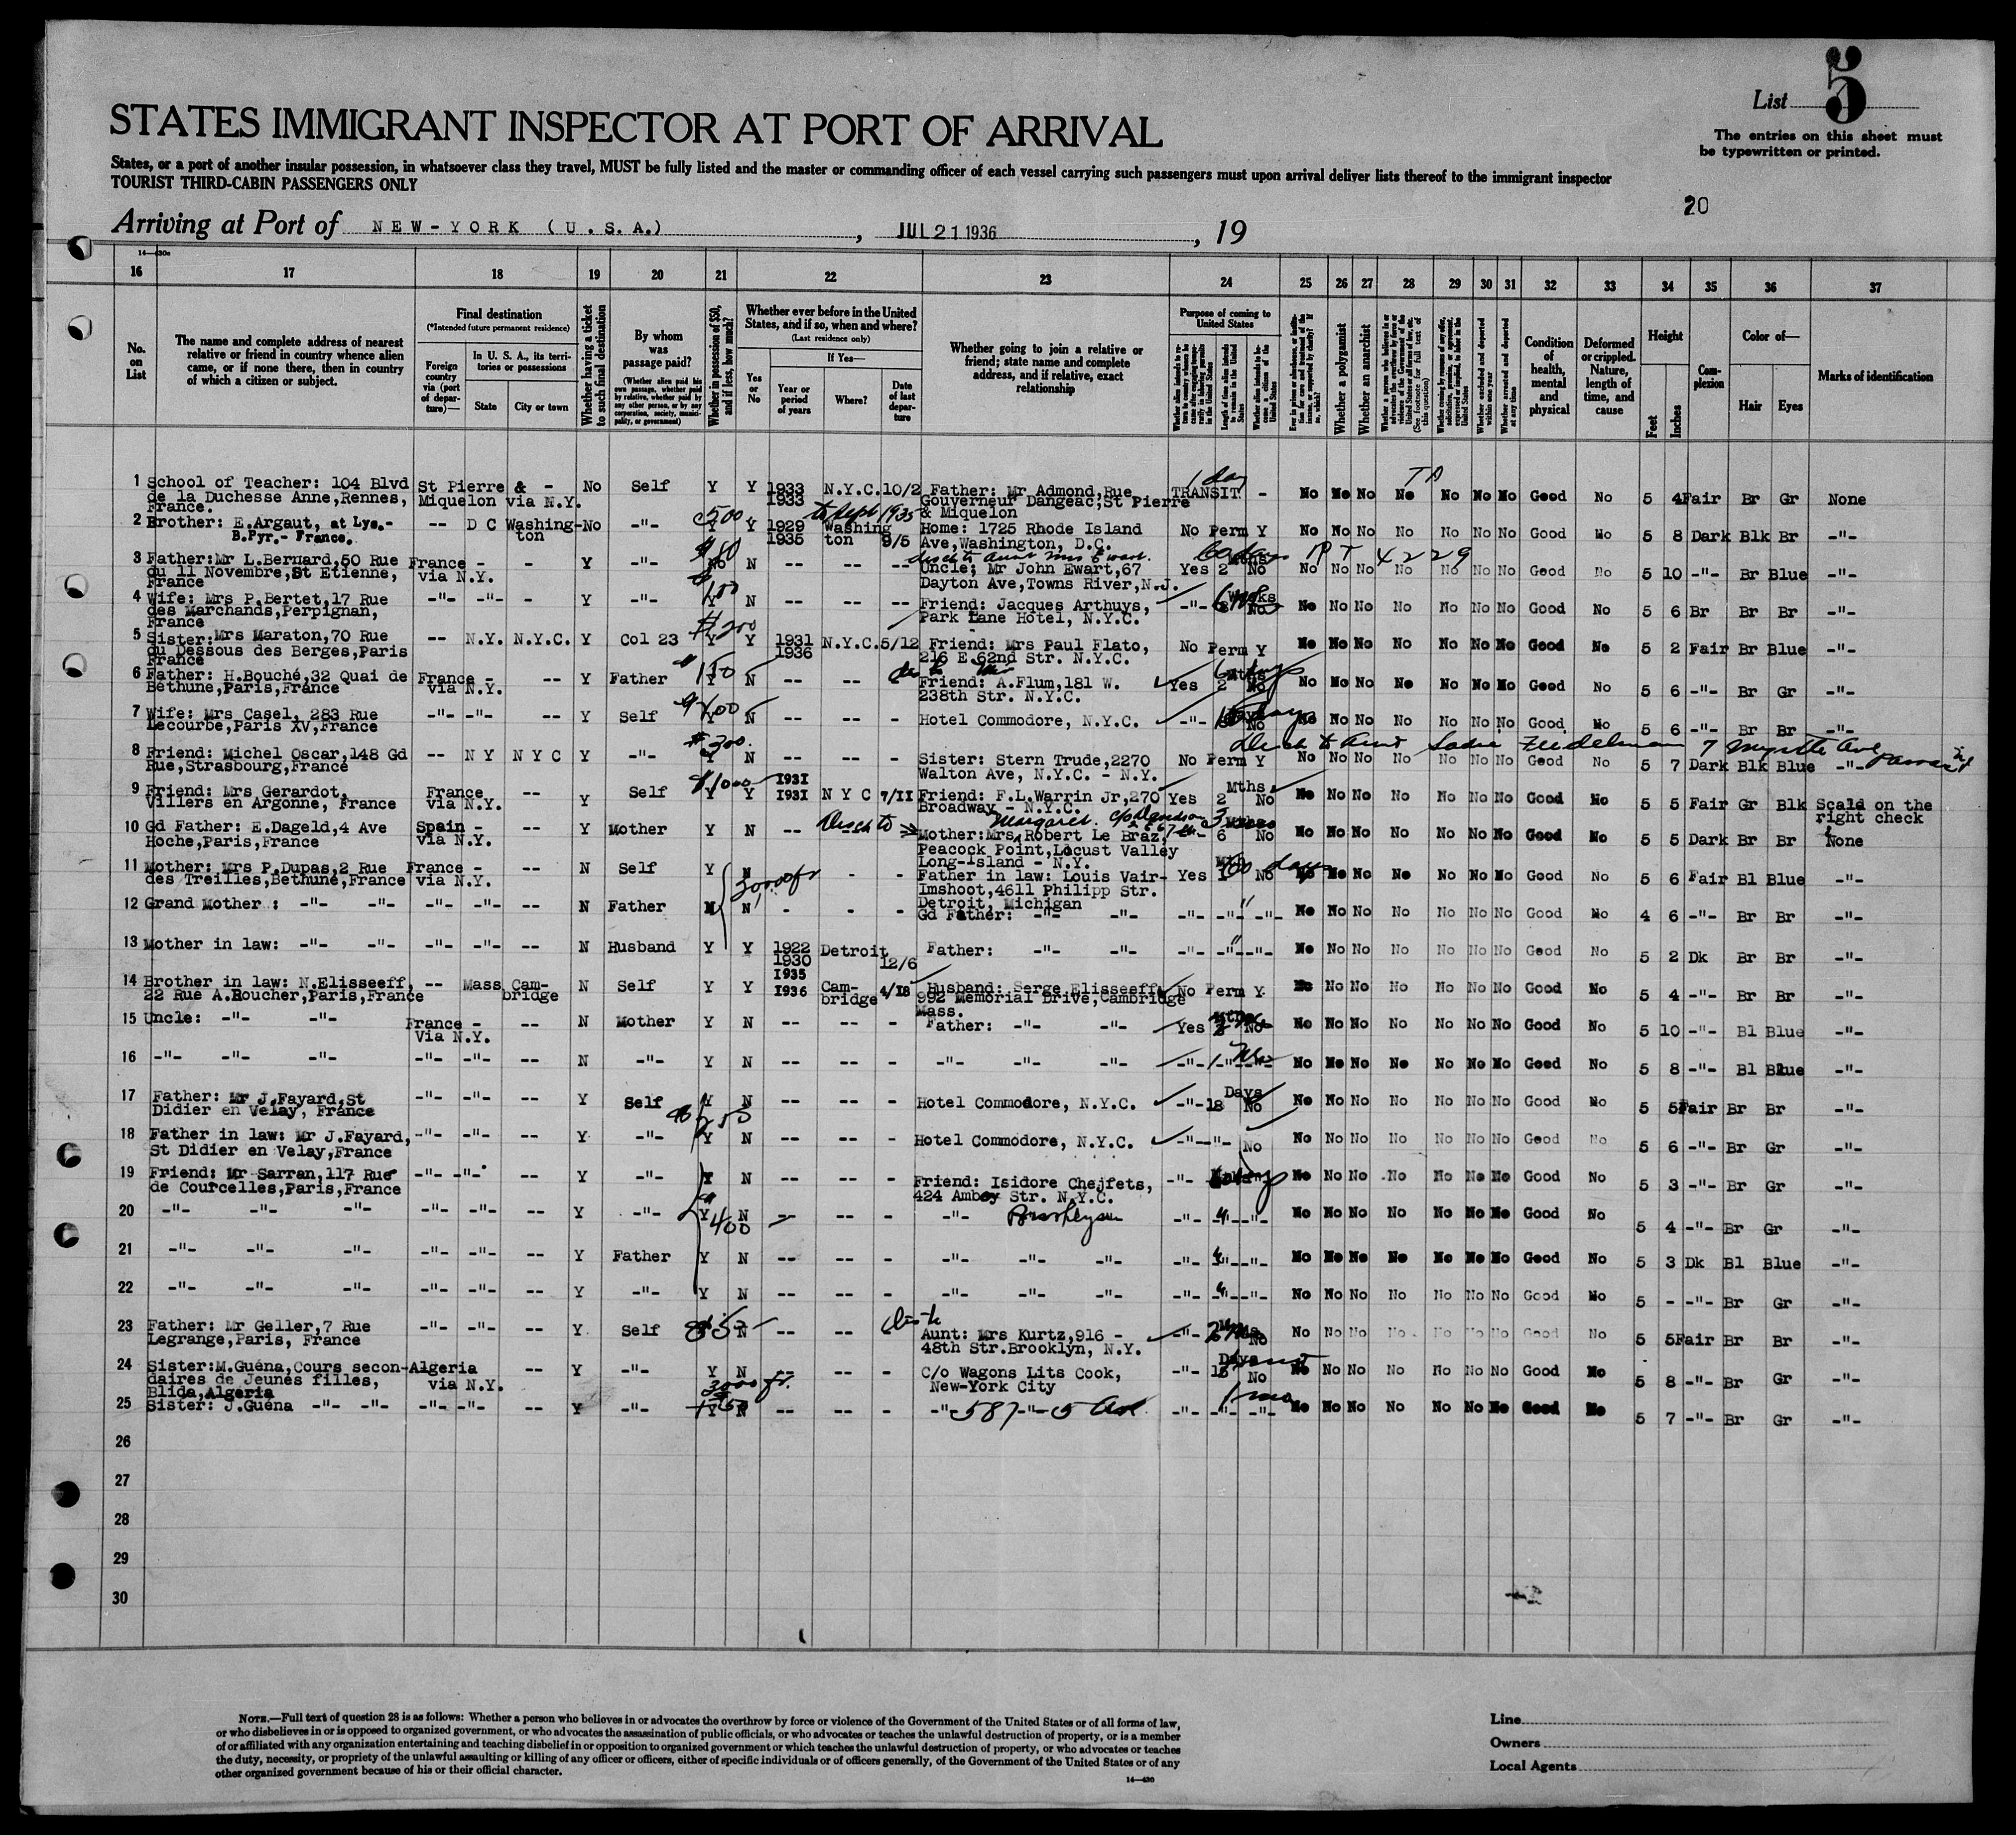 List 5
The entries on this sheet must
be typewritten or printed.
STATES IMMIGRANT INSPECTOR AT PORT OF ARRIVAL
States, or a port of another insular possession, in whatsoever class they travel, MUST be fully listed and the master or commanding officer of each vessel carrying such passengers must upon arrival deliver lists thereof to the immigrant inspector
TOURIST THIRD-CABIN PASSENGERS ONLY
20
Arriving at Port of NEW-YORK (U.S.A.), JUL 21 1936, 19
16 17 18 19 20 21 22 23 24 25 26 27 28 29 30 31 32 33 34 35 36 37
No. on List
The name and complete address of nearest relative or friend in country whence alien came, or if none there, then in country of which a citizen or subject.
Final destination
(*Intended future permanent residence)
Foreign country via (port of departure)—
In U. S. A., its territories or possessions
State
City or town
Whether having a ticket to such final destination
By whom was passage paid?
(Whether alien paid his own passage, whether paid by relative, whether paid by any other person, or by any corporation, society, municipality, or government)
Whether in possession of $50, and if less, how much?
Whether ever before in the United States, and if so, when and where?
(Last residence only)
Yes or No
If Yes—
Year or period of years
Where?
Date of last departure
Whether going to join a relative or friend; state name and complete address, and if relative, exact relationship
Purpose of coming to United States
Whether a polygamist
Whether an anarchist
Condition of health, mental and physical
Deformed or crippled. Nature, length of time, and cause
Height
Feet
Inches
Complexion
Color of—
Hair
Eyes
Marks of identification
1 School of Teacher: 104 Blvd de la Duchesse Anne,Rennes, France. St Pierre & - Miquelon via N.Y. No Self Y Y 1933 1933 N.Y.C. 10/2 Father: Mr Admond,Rue Gouverneur Dangeac,St Pierre & Miquelon 1 day TRANSIT - TA No No No No No No No Good No 5 4 Fair Br Gr None
2 Brother: E.Argaut, at Lys.- B.Pyr.- France. -- D C Washington No -"- 500 Y Y 1929 1935 Washington 8/5 Home: 1725 Rhode Island Ave,Washington, D.C. No Perm Y No No No No No No No Good No 5 8 Dark Blk Br -"-
3 Father:Mr L.Bernard,50 Rue du 11 Novembre,St Etienne, France France - via N.Y. - Y -"- $80 No N -- -- -- Uncle; Mr John Ewart,67 Dayton Ave,Towns River,N.J. Yes 2 No No No No No No No No Good No 5 10 -"- Br Blue -"-
4 Wife: Mrs P.Bertet,17 Rue des Marchands,Perpignan, France -"- -"- - Y -"- 100 Y N -- -- -- Friend: Jacques Arthuys, Park Lane Hotel, N.Y.C. -"- No No No No No No No No Good No 5 6 Br Br Br -"-
5 Sister:Mrs Maraton,70 Rue du Dessous des Berges,Paris France -- N.Y. N.Y.C. Y Col 23 $200 Y Y 1931 1936 N.Y.C. 5/12 Friend: Mrs Paul Flato, 216 E 62nd Str. N.Y.C. No Perm Y No No No No No No No Good No 5 2 Fair Br Blue -"-
6 Father: H.Bouché,32 Quai de Béthune,Paris,France France - via N.Y. -- Y Father 150 Y N -- -- Friend: A.Flum,181 W. 238th Str. N.Y.C. Yes 2 No No No No No No No No Good No 5 6 -"- Br Gr -"-
7 Wife: Mrs Casel, 283 Rue Lecourbe,Paris XV,France -"- -"- -- Y Self Y N -- -- - Hotel Commodore, N.Y.C. -"- No No No No No No No No Good No 5 6 -"- Br Br -"-
8 Friend: Michel Oscar,148 Gd Rue,Strasbourg,France -- N Y N Y C Y -"- $300. Y N -- -- - Sister: Stern Trude,2270 Walton Ave, N.Y.C. - N.Y. No Perm Y No No No No No No No Good No 5 7 Dark Blk Blue -"-
9 Friend: Mrs Gerardot, Villers en Argonne, France France via N.Y. -- Y Self $1000 Y Y 1931 1931 N Y C 7/11 Friend: F.L.Warrin Jr,270 Broadway - N.Y.C. Yes 2 Mths No No No No No No No No Good No 5 5 Fair Gr Blk Scald on the right check
10 Gd Father: E.Dageld,4 Ave Hoche,Paris,France Spain - via N.Y. -- Y Mother Y N -- Mother:Mrs Margaret Robert Le Braz, Peacock Point,Locust Valley Long-Island - N.Y. -"- 6 No No No No No No No No Good No 5 5 Dark Br Br None
11 Mother: Mrs P.Dupas,2 Rue des Treilles,Bethune,France France - via N.Y. -- N Self Y N - - Father in law: Louis Vair-Imshoot,4611 Philipp Str. Detroit, Michigan Yes No No No No No No No No Good No 5 6 Fair Bl Blue -"-
12 Grand Mother : -"- -"- -"- -"- -- N Father N N - - - Gd Father: -"- -"- -"- -"- -"- No No No No No No No Good No 4 6 -"- Br Br -"-
13 Mother in law: -"- -"- -"- -"- -- N Husband Y Y 1922 1930 Detroit 12/6 Father: -"- -"- -"- -"- -"- No No No No No No No Good No 5 2 Dk Br Br -"-
14 Brother in law: N.Elisseeff, 22 Rue A.Roucher,Paris,France -- Mass Cambridge N Self Y Y 1935 1936 Cambridge 4/18 Husband: Serge Elisseeff 992 Memorial Drive,Cambridge Mass. No Perm Y No No No No No No No Good No 5 4 -"- Br Br -"-
15 Uncle: -"- -"- France - Via N.Y. -- N Mother Y N -- -- - Father: -"- -"- Yes No No No No No No No No Good No 5 10 -"- Bl Blue -"-
16 -"- -"- -"- -"- -"- -- N -"- Y N -- -- - -"- -"- -"- -"- No No No No No No No Good No 5 8 -"- Bl Blue -"-
17 Father: Mr J.Fayard,St Didier en Velay, France -"- -"- -- Y Self Y N -- -- - Hotel Commodore, N.Y.C. -"- 18 Days No No No No No No No No Good No 5 5 Fair Br Br -"-
18 Father in law: Mr J.Fayard, St Didier en Velay,France -"- -"- -- Y -"- Y N -- -- - Hotel Commodore, N.Y.C. -"- -"- No No No No No No No No Good No 5 6 -"- Br Gr -"-
19 Friend: Mr Sarran,117 Rue de Courcelles,Paris,France -"- -"- -- Y -"- Y N -- -- - Friend: Isidore Chejfets, 424 Amboy Str. N.Y.C. -"- No No No No No No No Good No 5 3 -"- Br Gr -"-
20 -"- -"- -"- -"- -"- -- Y -"- Y N $400 -- -- - -"- Brooklyn -"- -"- -"- No No No No No No No Good No 5 4 -"- Br Gr -"-
21 -"- -"- -"- -"- -"- -- Y Father Y N -- -- - -"- -"- -"- -"- -"- -"- No No No No No No No Good No 5 3 Dk Bl Blue -"-
22 -"- -"- -"- -"- -"- -- Y -"- Y N -- -- - -"- -"- -"- -"- -"- -"- No No No No No No No Good No 5 - -"- Br Gr -"-
23 Father: Mr Geller,7 Rue Legrange,Paris, France -"- -"- -- Y Self N -- -- Aunt: Mrs Kurtz,916 - 48th Str.Brooklyn, N.Y. -"- No No No No No No No No Good No 5 5 Fair Br Br -"-
24 Sister:M.Guéna,Cours secondaires de Jeunes filles, Blida,Algeria Algeria via N.Y. -- Y -"- Y N 3000 fr. -- -- - C/o Wagons Lits Cook, New-York City -"- 15 Days No No No No No No No No Good No 5 8 -"- Br Gr -"-
25 Sister: J.Guéna -"- -"- -"- -"- -- Y -"- Y N -- -- - -"- 587 -"- 5 Ave. 1 mo -"- -"- -"- No No No No No No No Good No 5 7 -"- Br Gr -"-
26
27
28
29
30
NOTE.—Full text of question 28 is as follows: Whether a person who believes in or advocates the overthrow by force or violence of the Government of the United States or of all forms of law,
or who disbelieves in or is opposed to organized government, or who advocates the assassination of public officials, or who advocates or teaches the unlawful destruction of property, or is a member
of or affiliated with any organization entertaining and teaching disbelief in or opposition to organized government or which teaches the unlawful destruction of property, or who advocates or teaches
the duty, necessity, or propriety of the unlawful assaulting or killing of any officer or officers, either of specific individuals or of officers generally, of the Government of the United States or of any
other organized government because of his or their official character.
14—430
Line
Owners
Local Agents